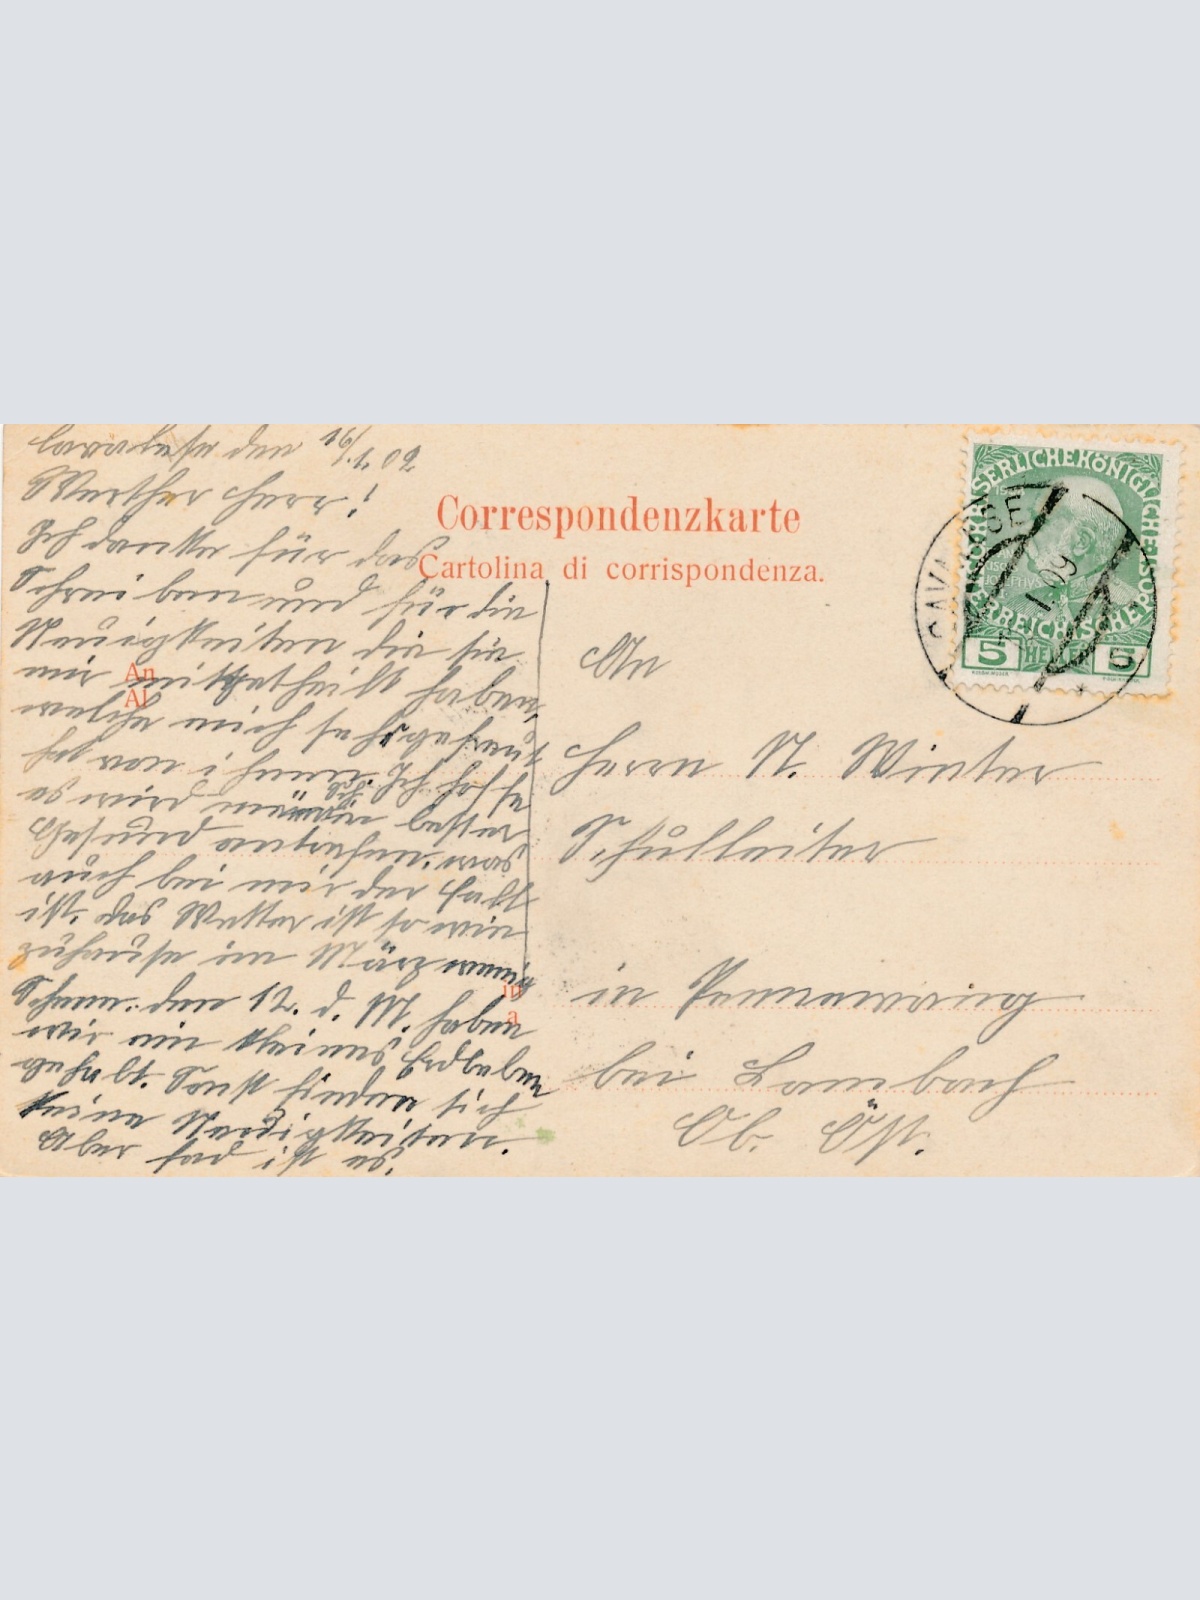 Cavalese den 16/1. 09
Werther Herr!
Ich danke für das
Schreiben und für die
Neuigkeiten die sie
mir mitgetheilt haben,
welche mich sehr gefreut
hat von ihnen. Ich hoffe
es wird besser
Gesund antrefen. was
auch bei mir der Fall
ist. das Wetter ist so wie
zuhause im März wenig
Schnee. den 12. d. M. haben
wir ein kleines Erdbeben
gehabt. Sonst finden sich
keine Neuigkeiten.
Aber fad ist es.
Correspondenzkarte
Cartolina di corrispondenza.
An
Al
in
a
An
Herrn N. Winter
Schulleiter
in Pennewang
bei Lambach
Ob. Öst.
KAISERLICHEKÖNIGLICHEÖSTERREICHISCHEPOST
5 HELLER 5
CAVALESE
1 09